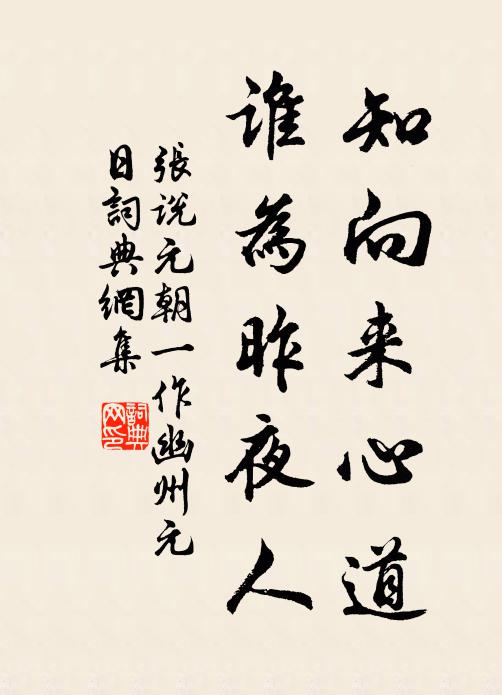 知向来心道
谁為昨夜人
張说元朝一作幽州元
日詞典網集
詞典网印